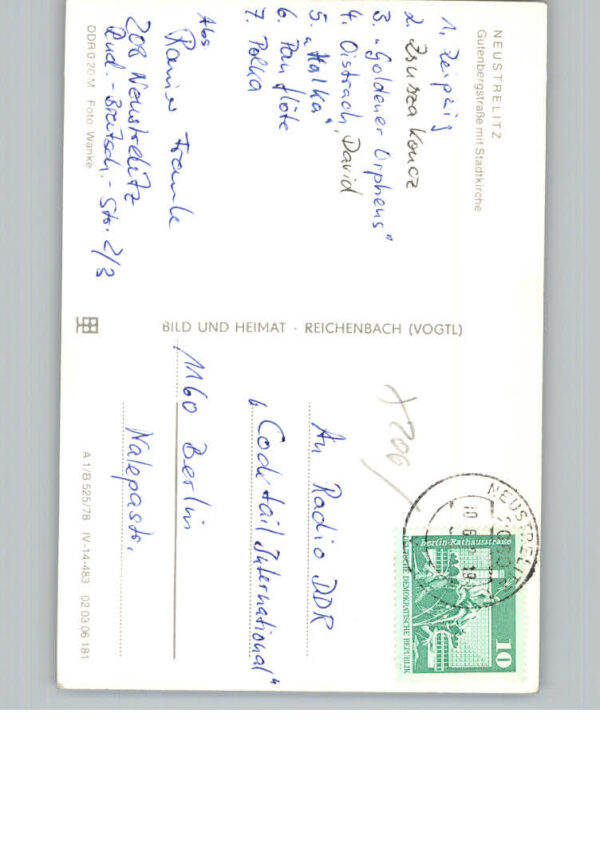 NEUSTRELITZ
Gutenbergstraße mit Stadtkirche
1. Leipzig
2. Zsusza Koncz
3. "Goldener Orpheus"
4. Oistrach, David
5. "Halka"
6. Panflöte
7. Polka
Abs
Rainer
208 Neustrelitz
Rud.-Breitsch.-Str. 2/3
DDR 0,20 M Foto Wanke
BILD UND HEIMAT · REICHENBACH (VOGTL)
206
NEUSTRELI
2080
Berlin-Rathausstraße
DEUTSCHE DEMOKRATISCHE REPUBLIK
10
An Radio DDR
"Cocktail International"
1160 Berlin
Nalepastr.
A 1/B 525/78 IV-14-483 02 03 06 181